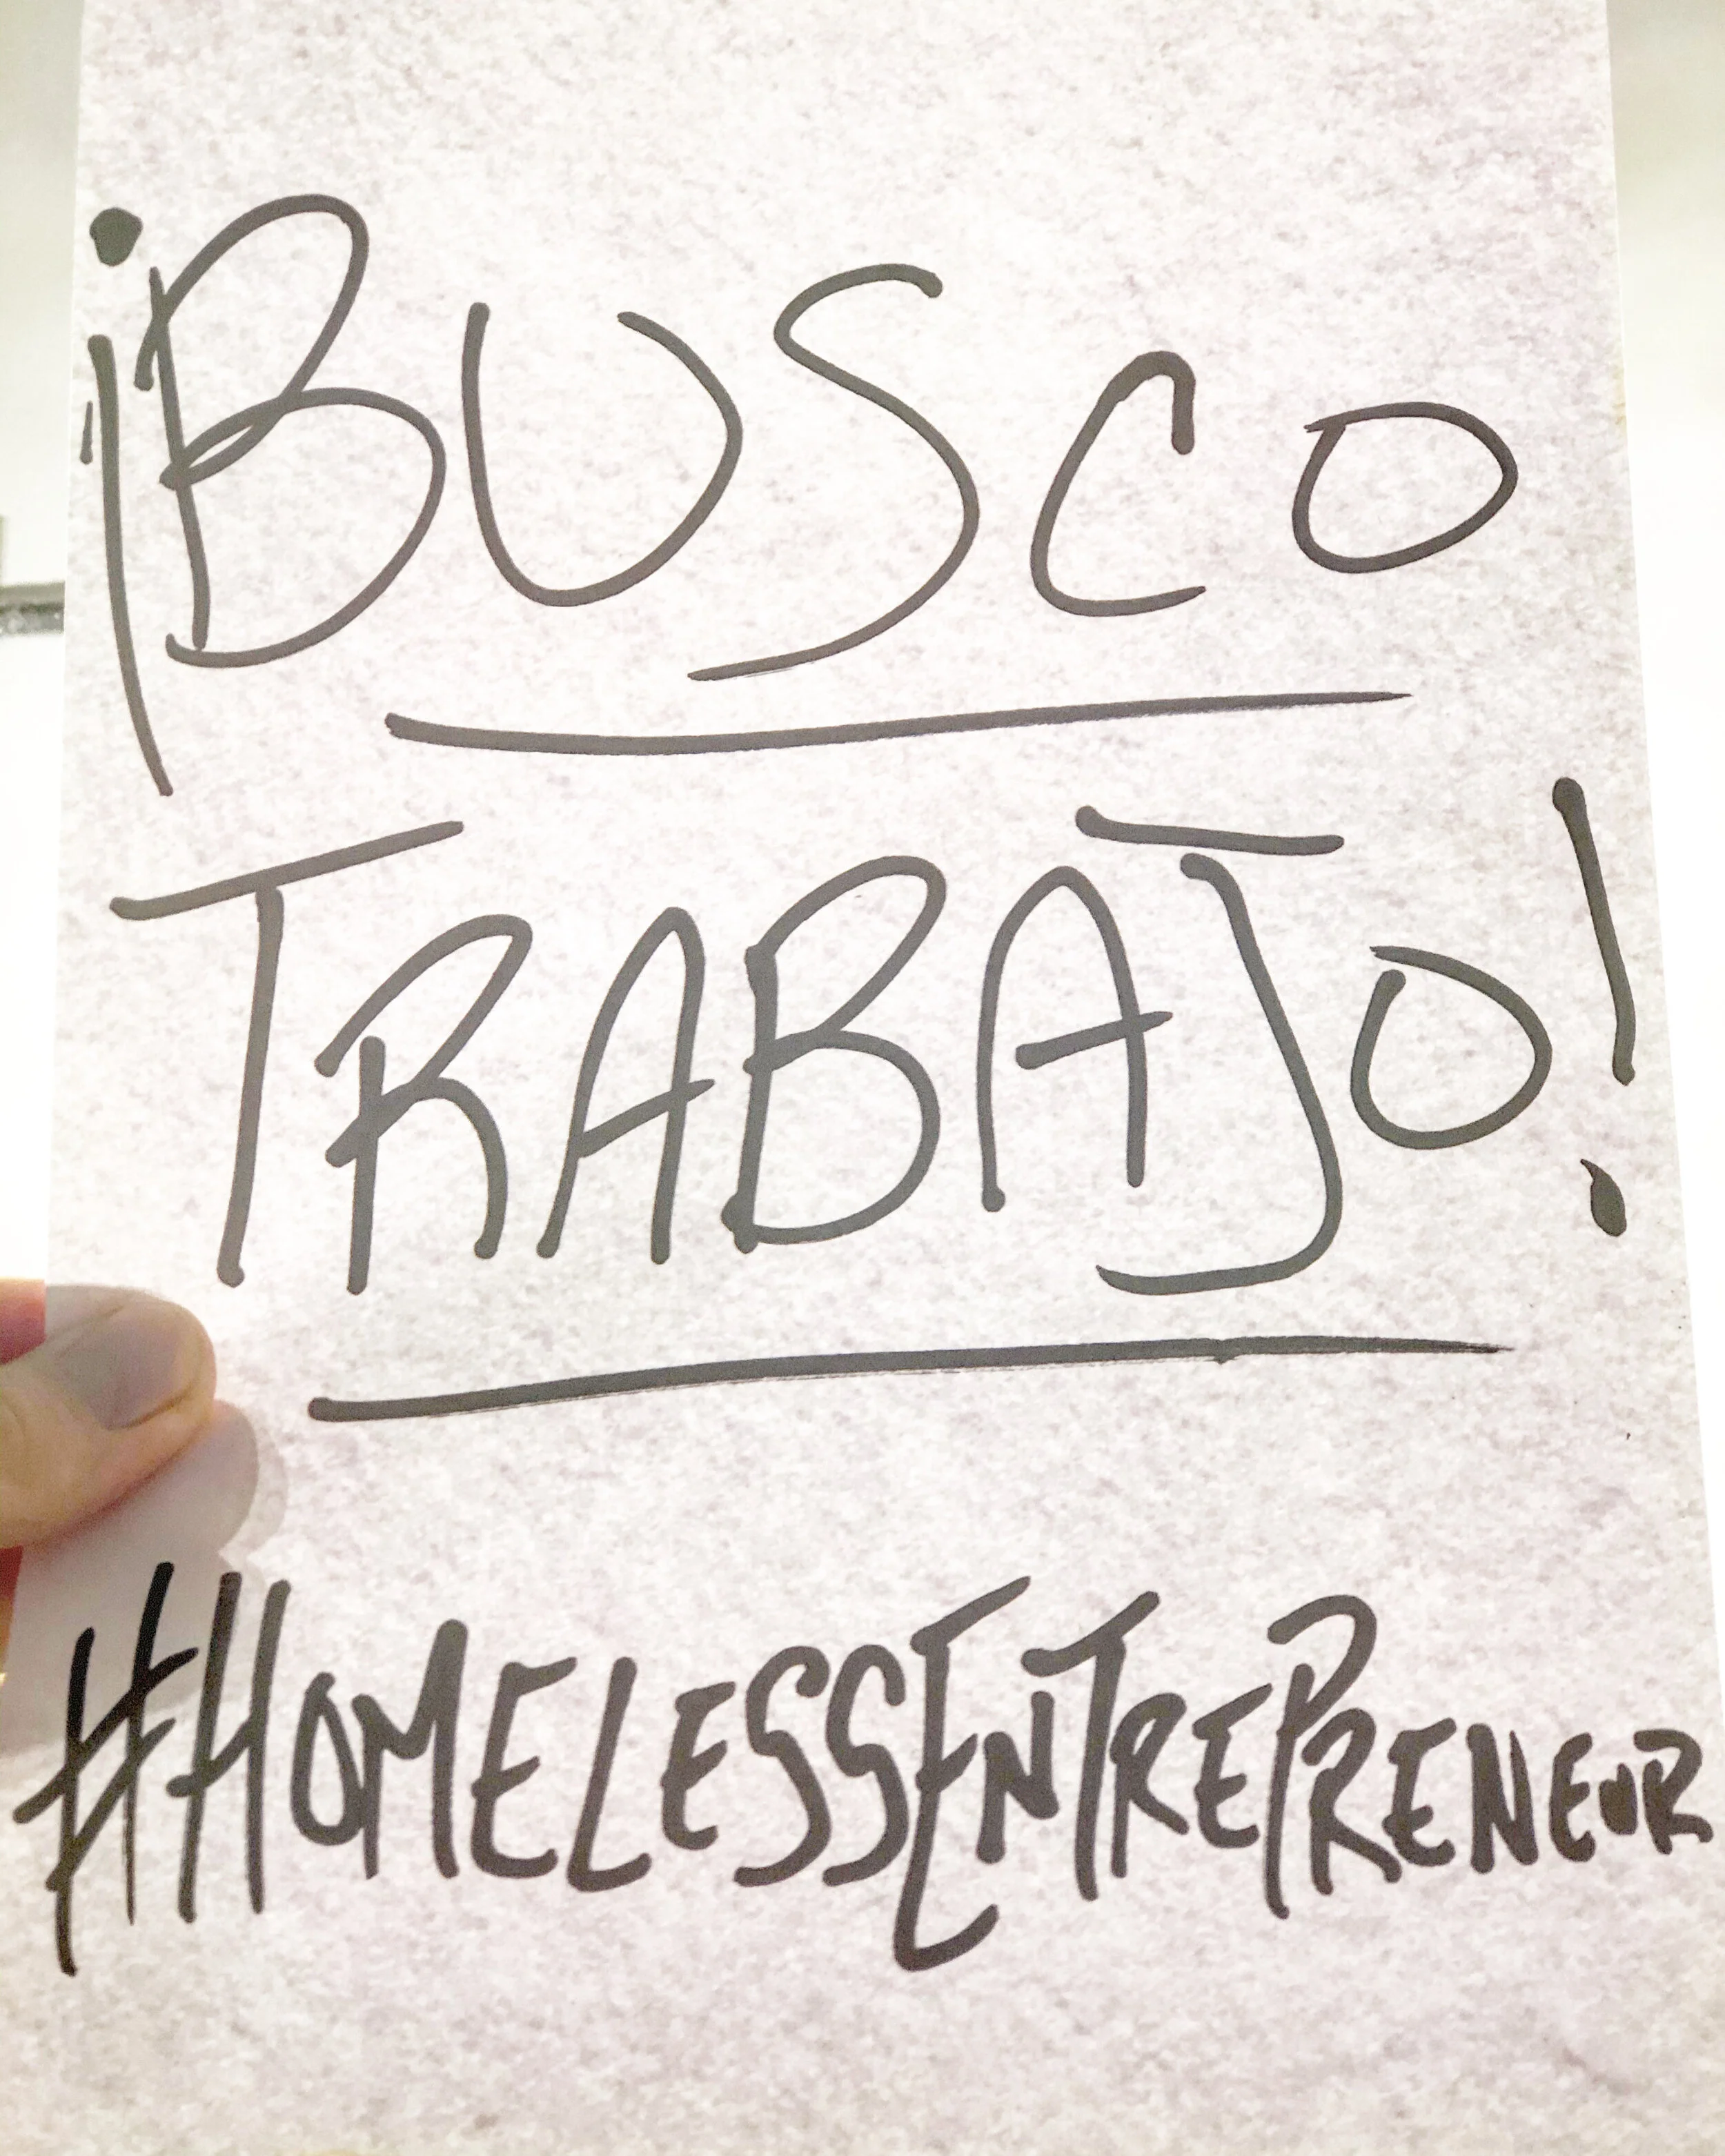 ¡BUSCO
TRABAJO!
#HOMELESSENTREPRENEUR